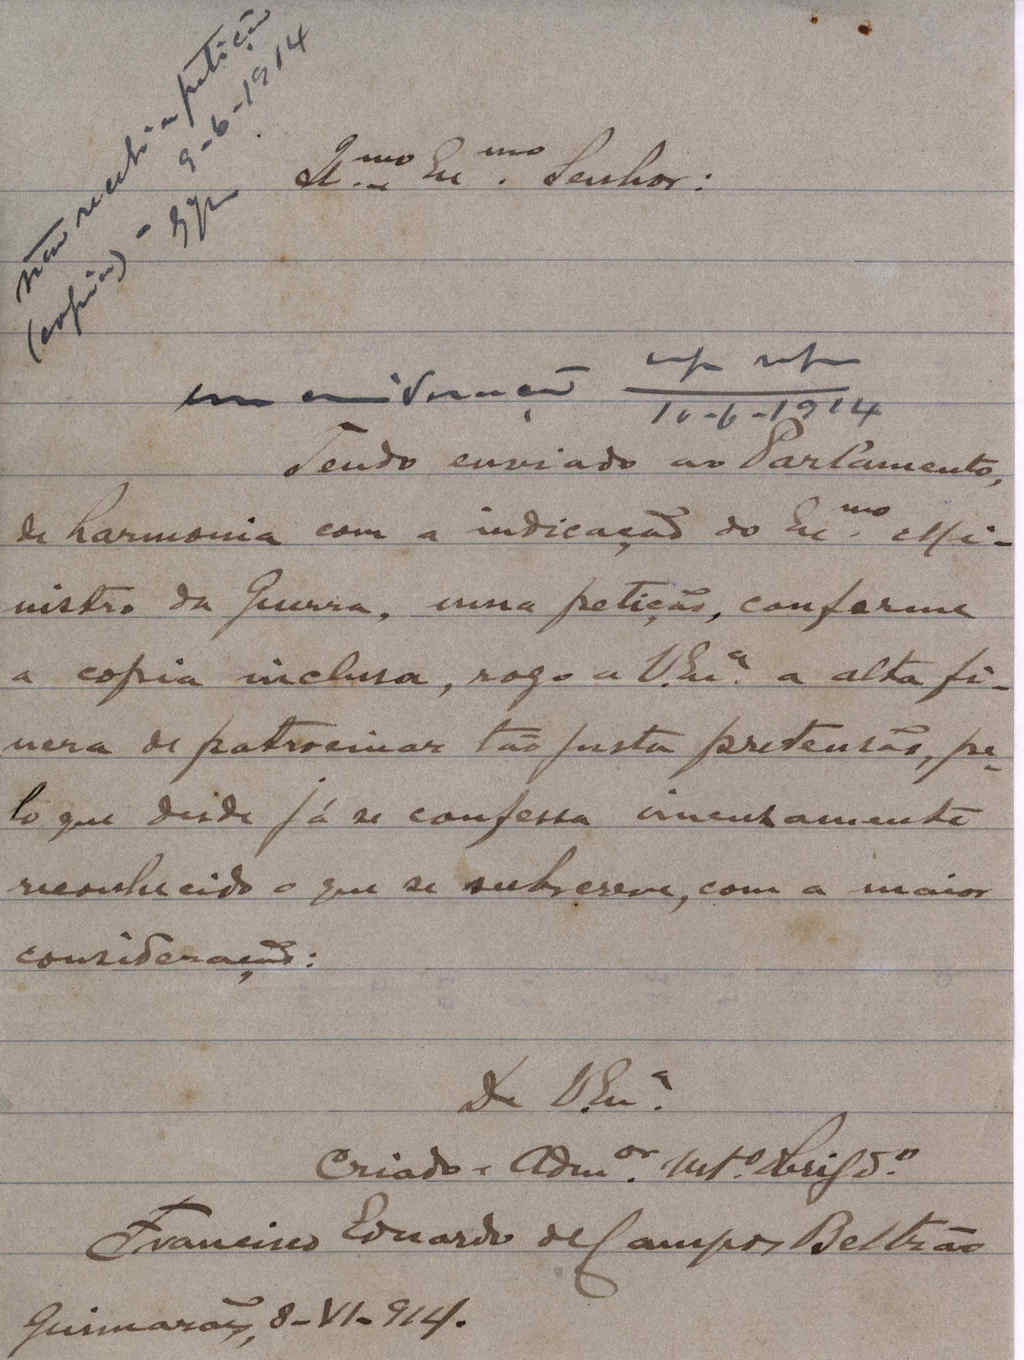 não recebi a petição
(copia) - 9-6-1914
Il.mo Ex.mo Senhor:
em consideração
10-6-1914
Tendo enviado ao Parlamento,
de harmonia com a indicação do Ex.mo Mi-
nistro da Guerra, uma petição, conforme
a copia inclusa, rogo a V.Ex.a a alta fi-
neza de patrocinar tão justa pretensão, pe-
lo que desde já se confessa imensamente
reconhecido o que se subscreve, com a maior
consideração:
De V.Ex.a
Criado e Adm.or Mt.o Obrigd.o
Francisco Eduardo de Campos Beltrão
Guimarães, 8-VI-914.